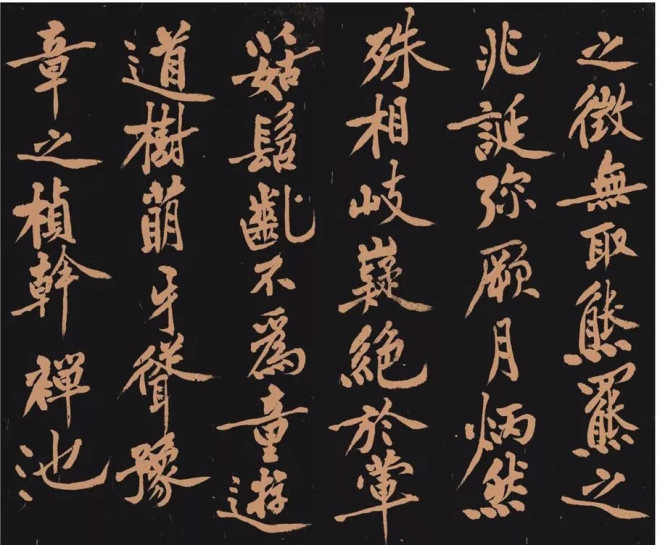 之徵無取熊羆之
兆誕弥厥月炳然
殊相岐嶷絕於葷
茹髫齔不爲童遊
道樹萌牙聳豫
章之楨幹禪池